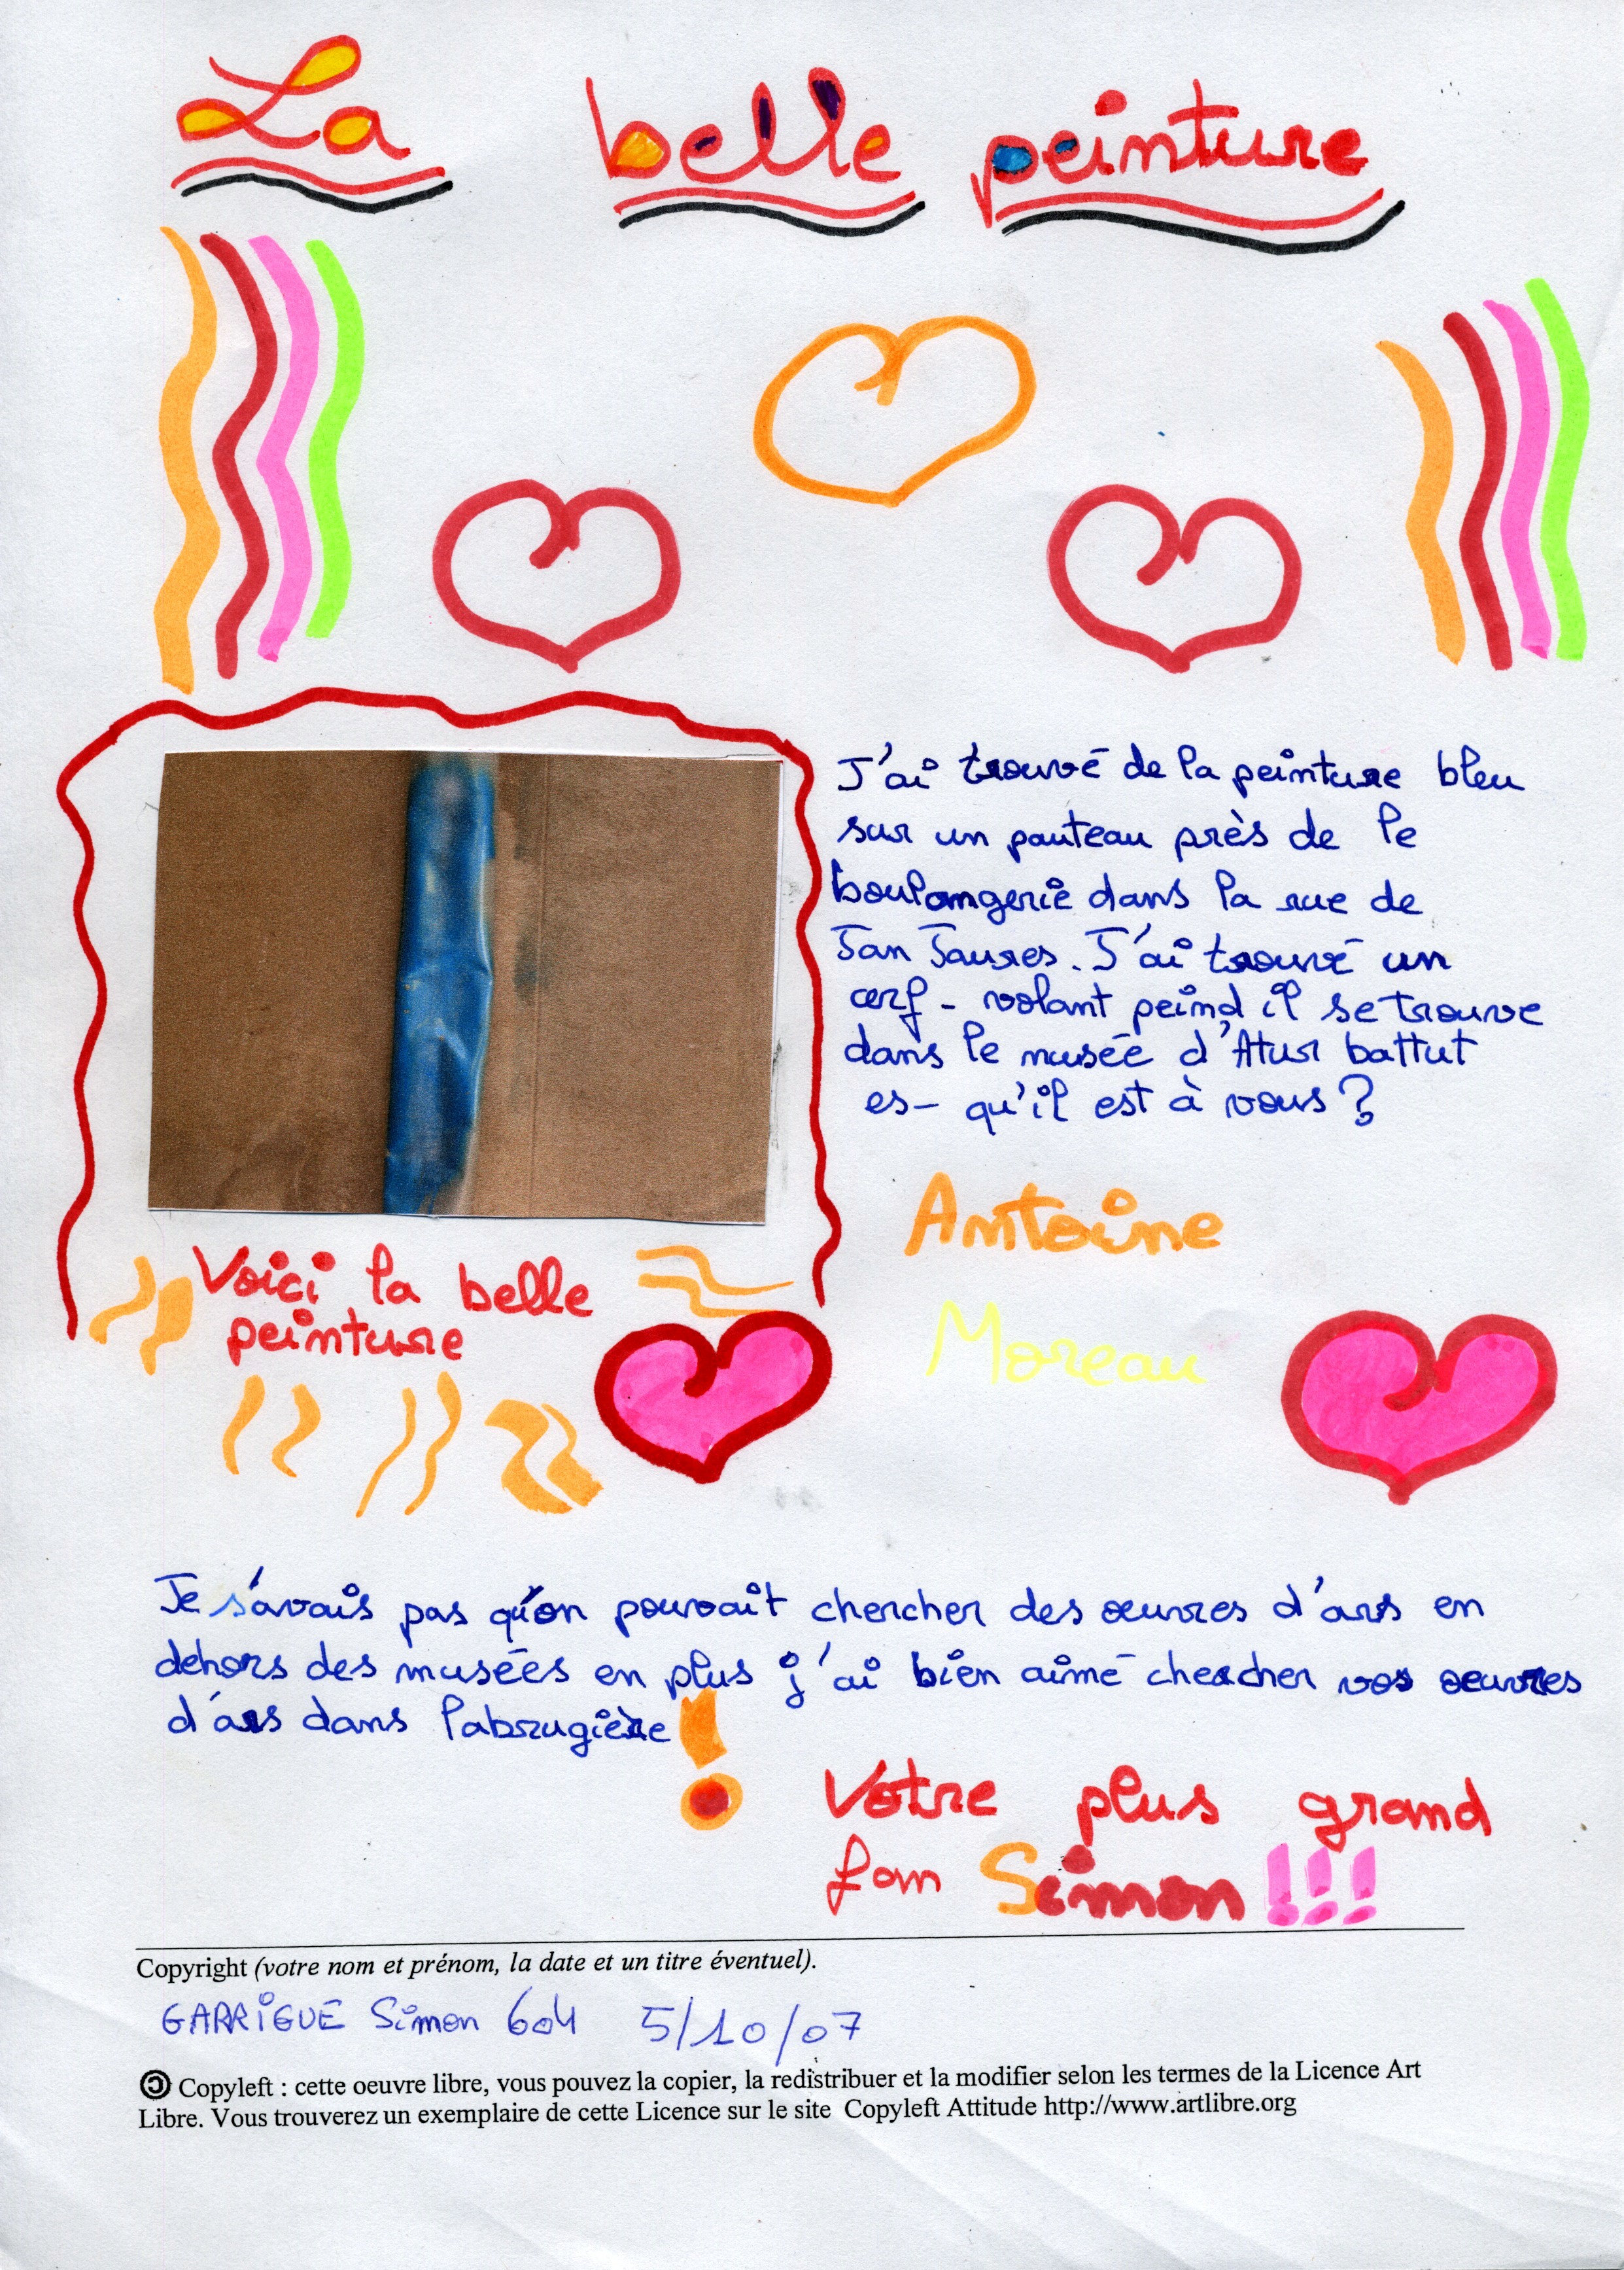 La belle peinture
J'ai trouvé de la peinture bleu
sur un pauteau près de le
boulangerie dans la rue de
Jan Jaures. J'ai trouvé un
cerf-volant peind il se trouve
dans le musée d'Atur battut
es-qu'il est à vous ?
Antoine
Moreau
Voici la belle
peinture
Je s'avais pas qu'on pouvait chercher des œuvres d'ars en
dehors des musées en plus j'ai bien aimé chercher vos œuvres
d'ars dans labrugière !
Votre plus grand
fan Simon !!!
Copyright (votre nom et prénom, la date et un titre éventuel).
GARRIGUE Simon 604 5/10/07
Copyleft : cette oeuvre libre, vous pouvez la copier, la redistribuer et la modifier selon les termes de la Licence Art
Libre. Vous trouverez un exemplaire de cette Licence sur le site Copyleft Attitude http://www.artlibre.org